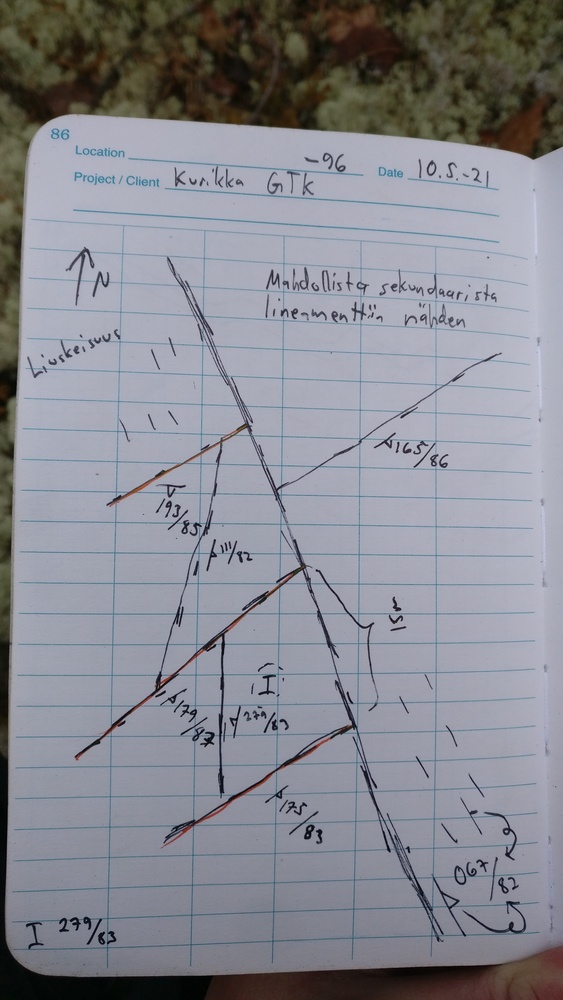 86
Location -96 Date 10.5.-21
Project / Client Kurikka GTK
N
Mahdollista sekundaarista
lineamenttiin nähden
Liuskeisuus
165/86
193/85
111/82
179/87
I
279/83
175/83
067/82
I 279/83